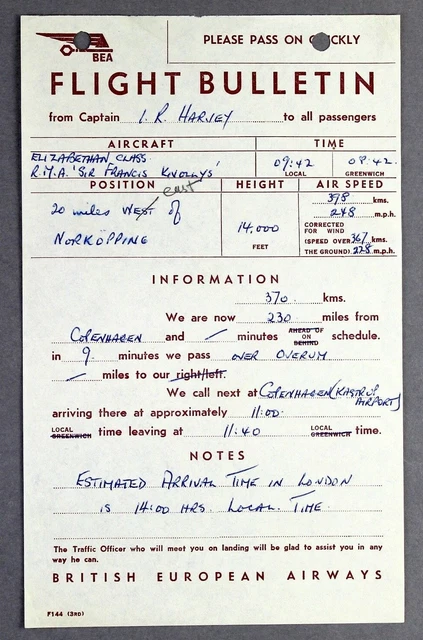 BEA
PLEASE PASS ON QUICKLY
FLIGHT BULLETIN
from Captain I. R. HARVEY to all passengers
AIRCRAFT TIME
ELIZABETHAN CLASS. 09:42 08:42.
R.M.A. 'SIR FRANCIS KNOLLYS' LOCAL GREENWICH
POSITION HEIGHT AIR SPEED
east
20 miles WEST of 14,000 378 kms.
248 m.p.h.
NORKÖPPING FEET CORRECTED
FOR WIND
(SPEED OVER 367 kms.
THE GROUND) 228 m.p.h.
INFORMATION
370 kms.
We are now 230 miles from
COPENHAGEN and — minutes AHEAD OF ON BEHIND schedule.
in 9 minutes we pass OVER OVERUM
— miles to our right/left.
We call next at COPENHAGEN (KASTRUP
AIRPORT)
arriving there at approximately 11:00
LOCAL GREENWICH time leaving at 11:40 LOCAL GREENWICH time.
NOTES
ESTIMATED ARRIVAL TIME IN LONDON
IS 14:00 HRS. LOCAL. TIME
The Traffic Officer who will meet you on landing will be glad to assist you in any
way he can.
BRITISH EUROPEAN AIRWAYS
F144 (3RD)